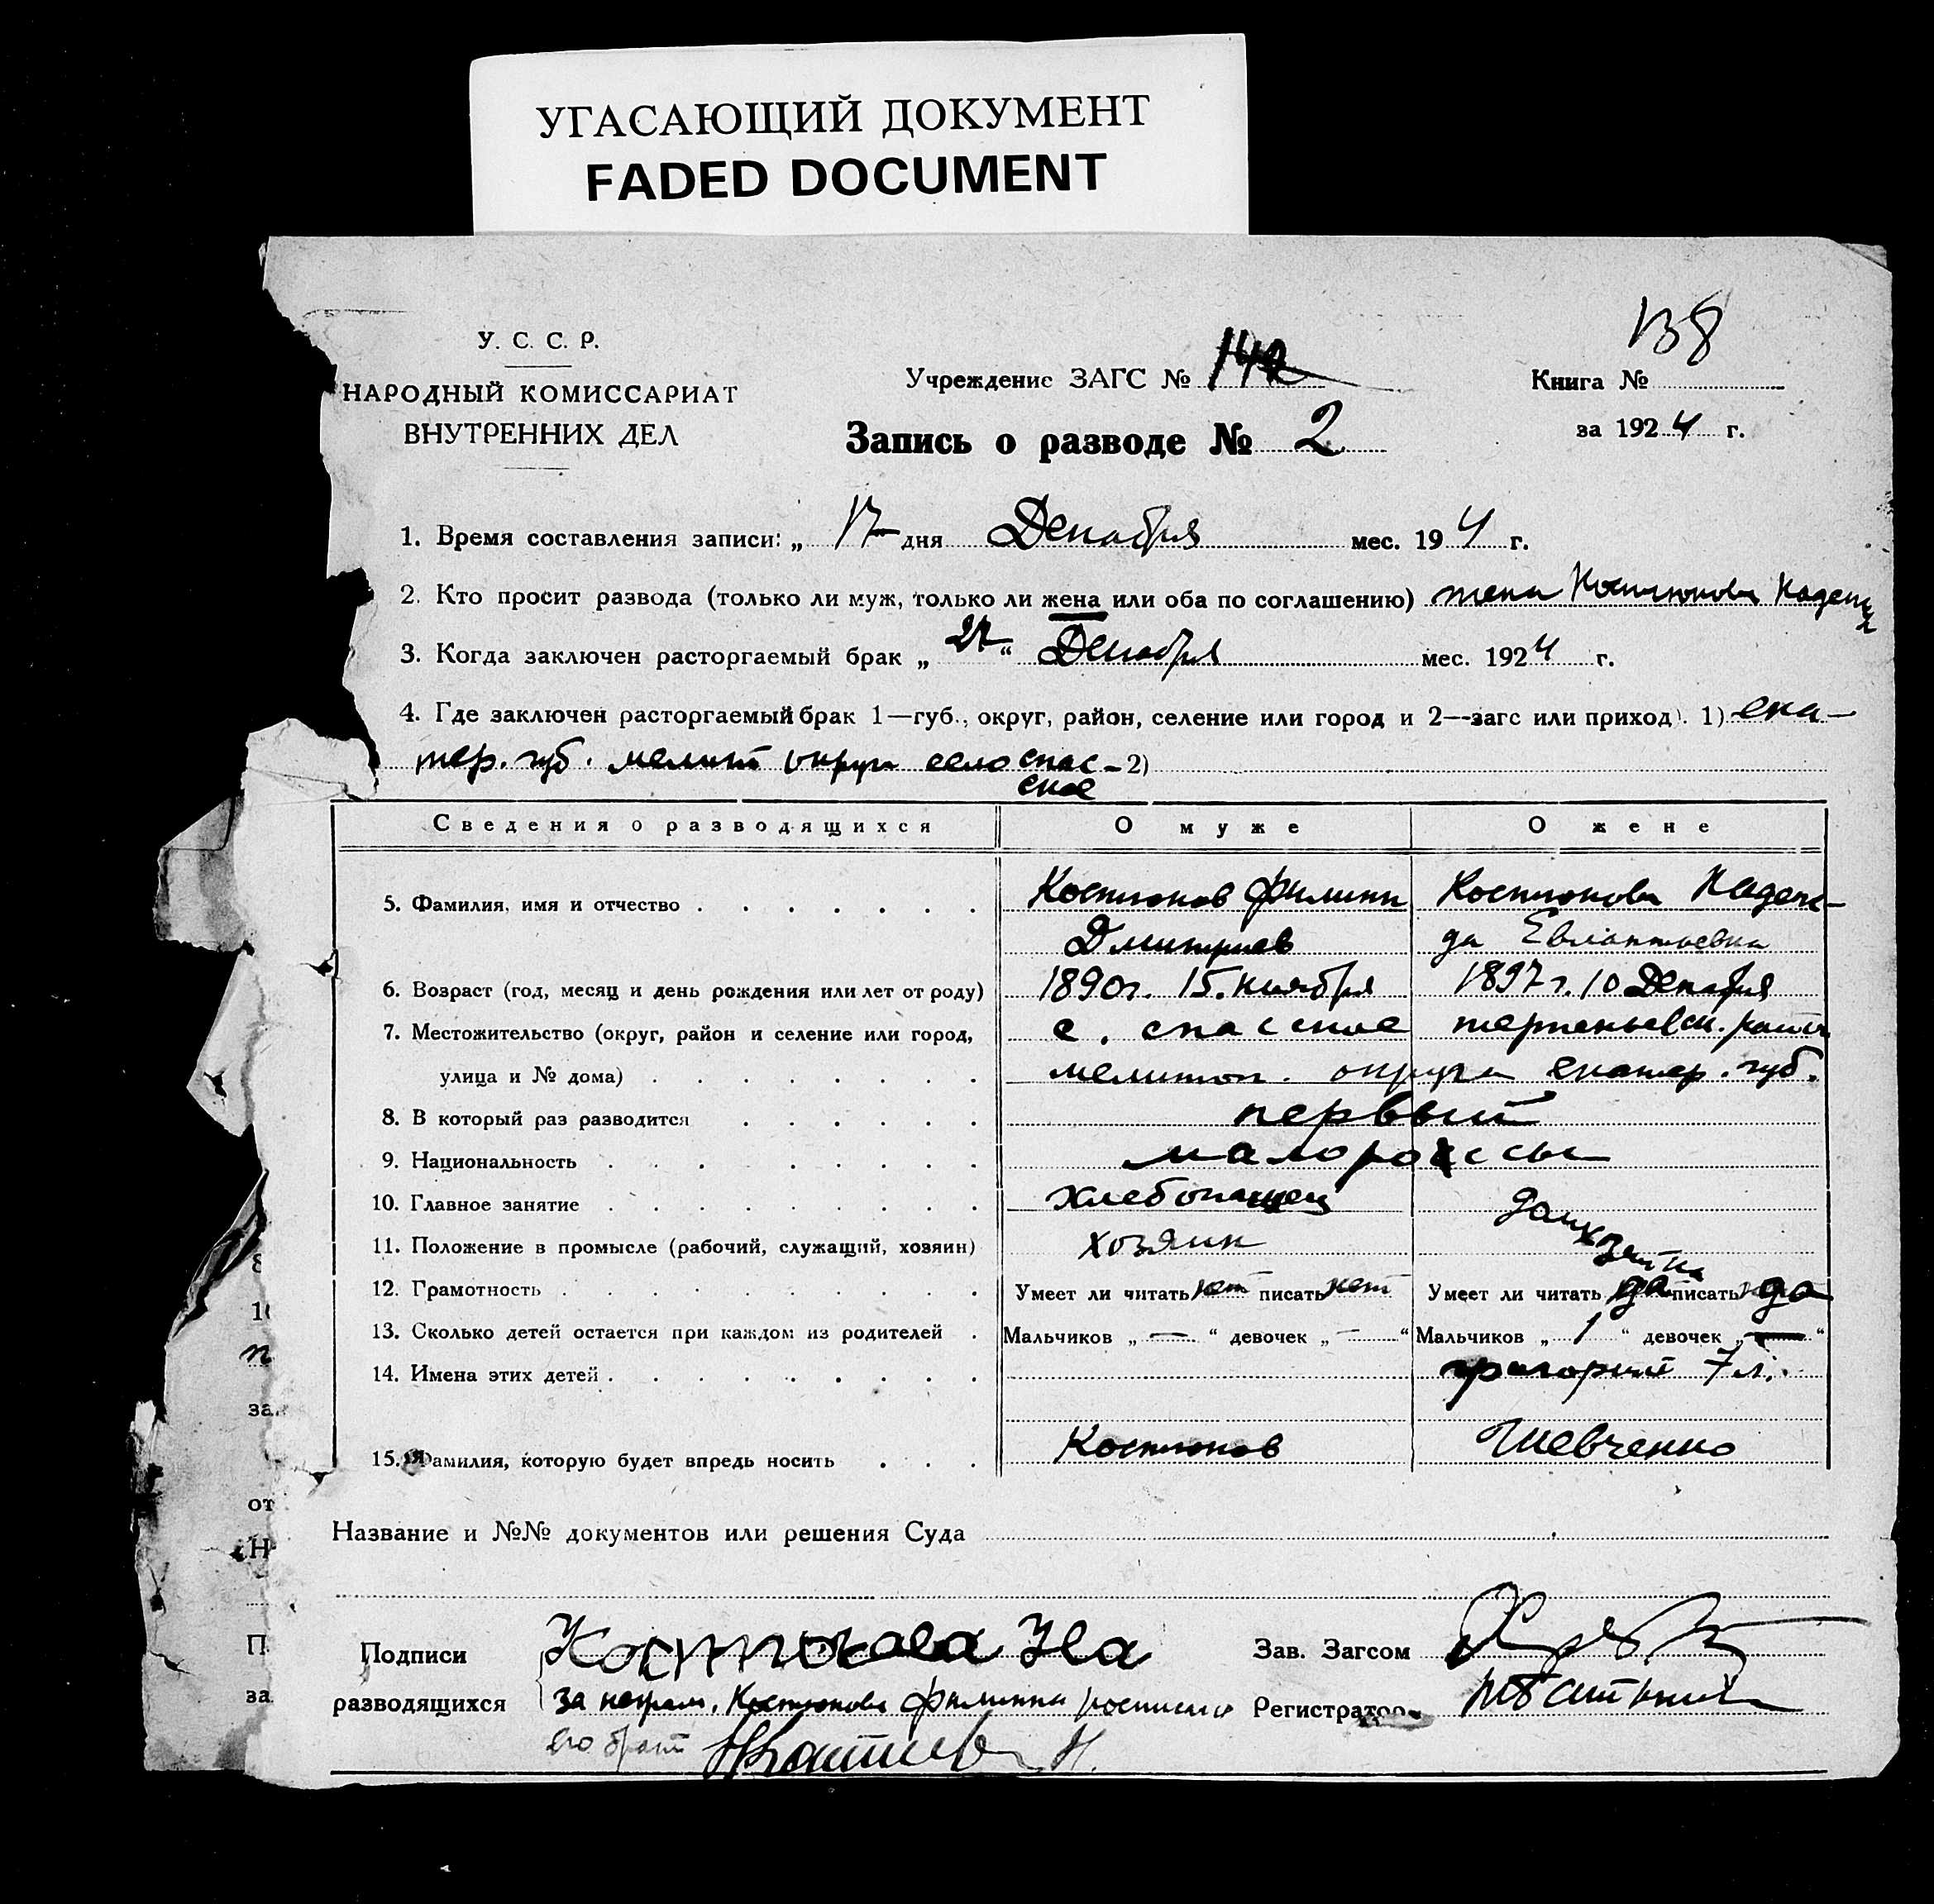 УГАСАЮЩИЙ ДОКУМЕНТ
FADED DOCUMENT
138
У. С. С. Р.
НАРОДНЫЙ КОМИССАРИАТ
ВНУТРЕННИХ ДЕЛ
Учреждение ЗАГС № 142
Книга №
Запись о разводе № 2
за 1924 г.
1. Время составления записи: „ 17 дня Декабря мес. 194 г.
2. Кто просит развода (только ли муж, только ли жена или оба по соглашению) жена Костюкова Надежда
3. Когда заключен расторгаемый брак „ 27 “ Декабря мес. 1924 г.
4. Где заключен расторгаемый брак 1—губ., округ, район, селение или город и 2—загс или приход). 1) ека-
тер. губ. мелит округа село спас- 2)
ское
Сведения о разводящихся О муже О жене
5. Фамилия, имя и отчество Костюков Филипп Костюкова Надеж-
Дмитриев да Евлантьевна
6. Возраст (год, месяц и день рождения или лет от роду) 1890г. 15. ноября 1897 г. 10 Декабря
7. Местожительство (округ, район и селение или город, с. спасское терпеньевск. район
улица и № дома) мелитоп. округа екатер. губ.
8. В который раз разводится первый
9. Национальность малороссы
10. Главное занятие хлебопашец домхозяйка
11. Положение в промысле (рабочий, служащий, хозяин) хозяин
12. Грамотность Умеет ли читать нет писать нет Умеет ли читать да писать да
13. Сколько детей остается при каждом из родителей Мальчиков „ — “ девочек „ — “ Мальчиков „ 1 “ девочек „ — “
14. Имена этих детей григорий 7 л.
15. Фамилия, которую будет впредь носить Костюков Шевченко
Название и №№ документов или решения Суда
Подписи Костюкова На Зав. Загсом
разводящихся за неграм. Костюкова Филиппа росписался Регистратор
его брат
8
10
п
за
от
Н
П
за